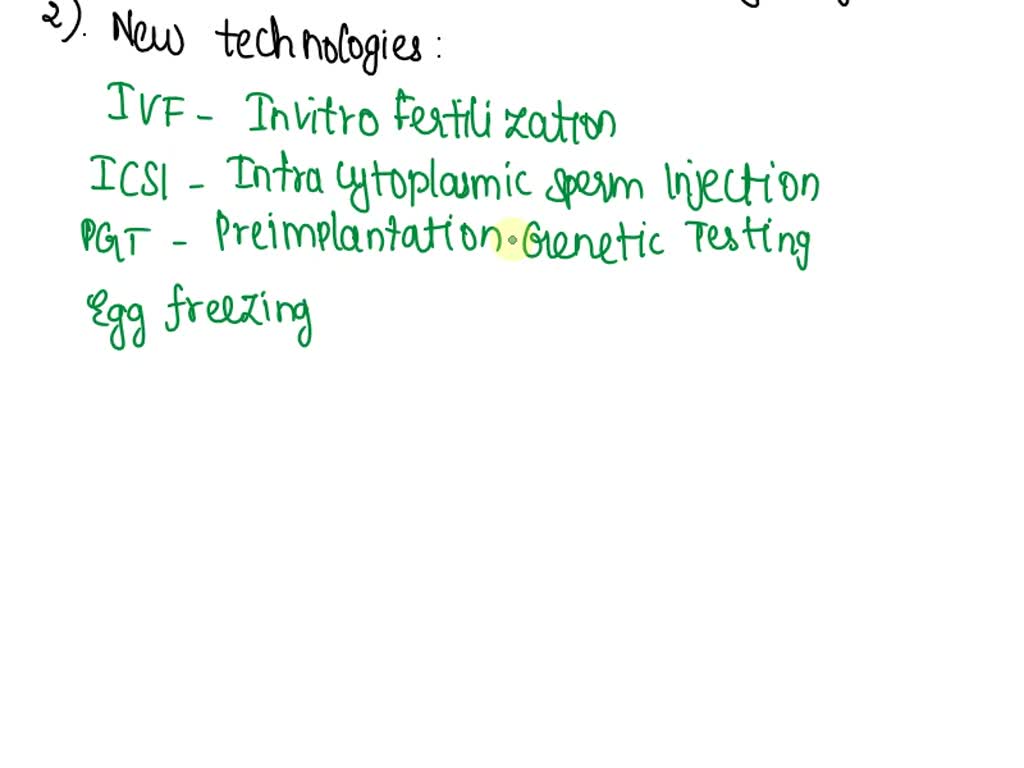 2). New technologies:
IVF - Invitro Fertilization
ICSI - Intra cytoplasmic sperm Injection
PGT - Preimplantation Genetic Testing
Egg freezing